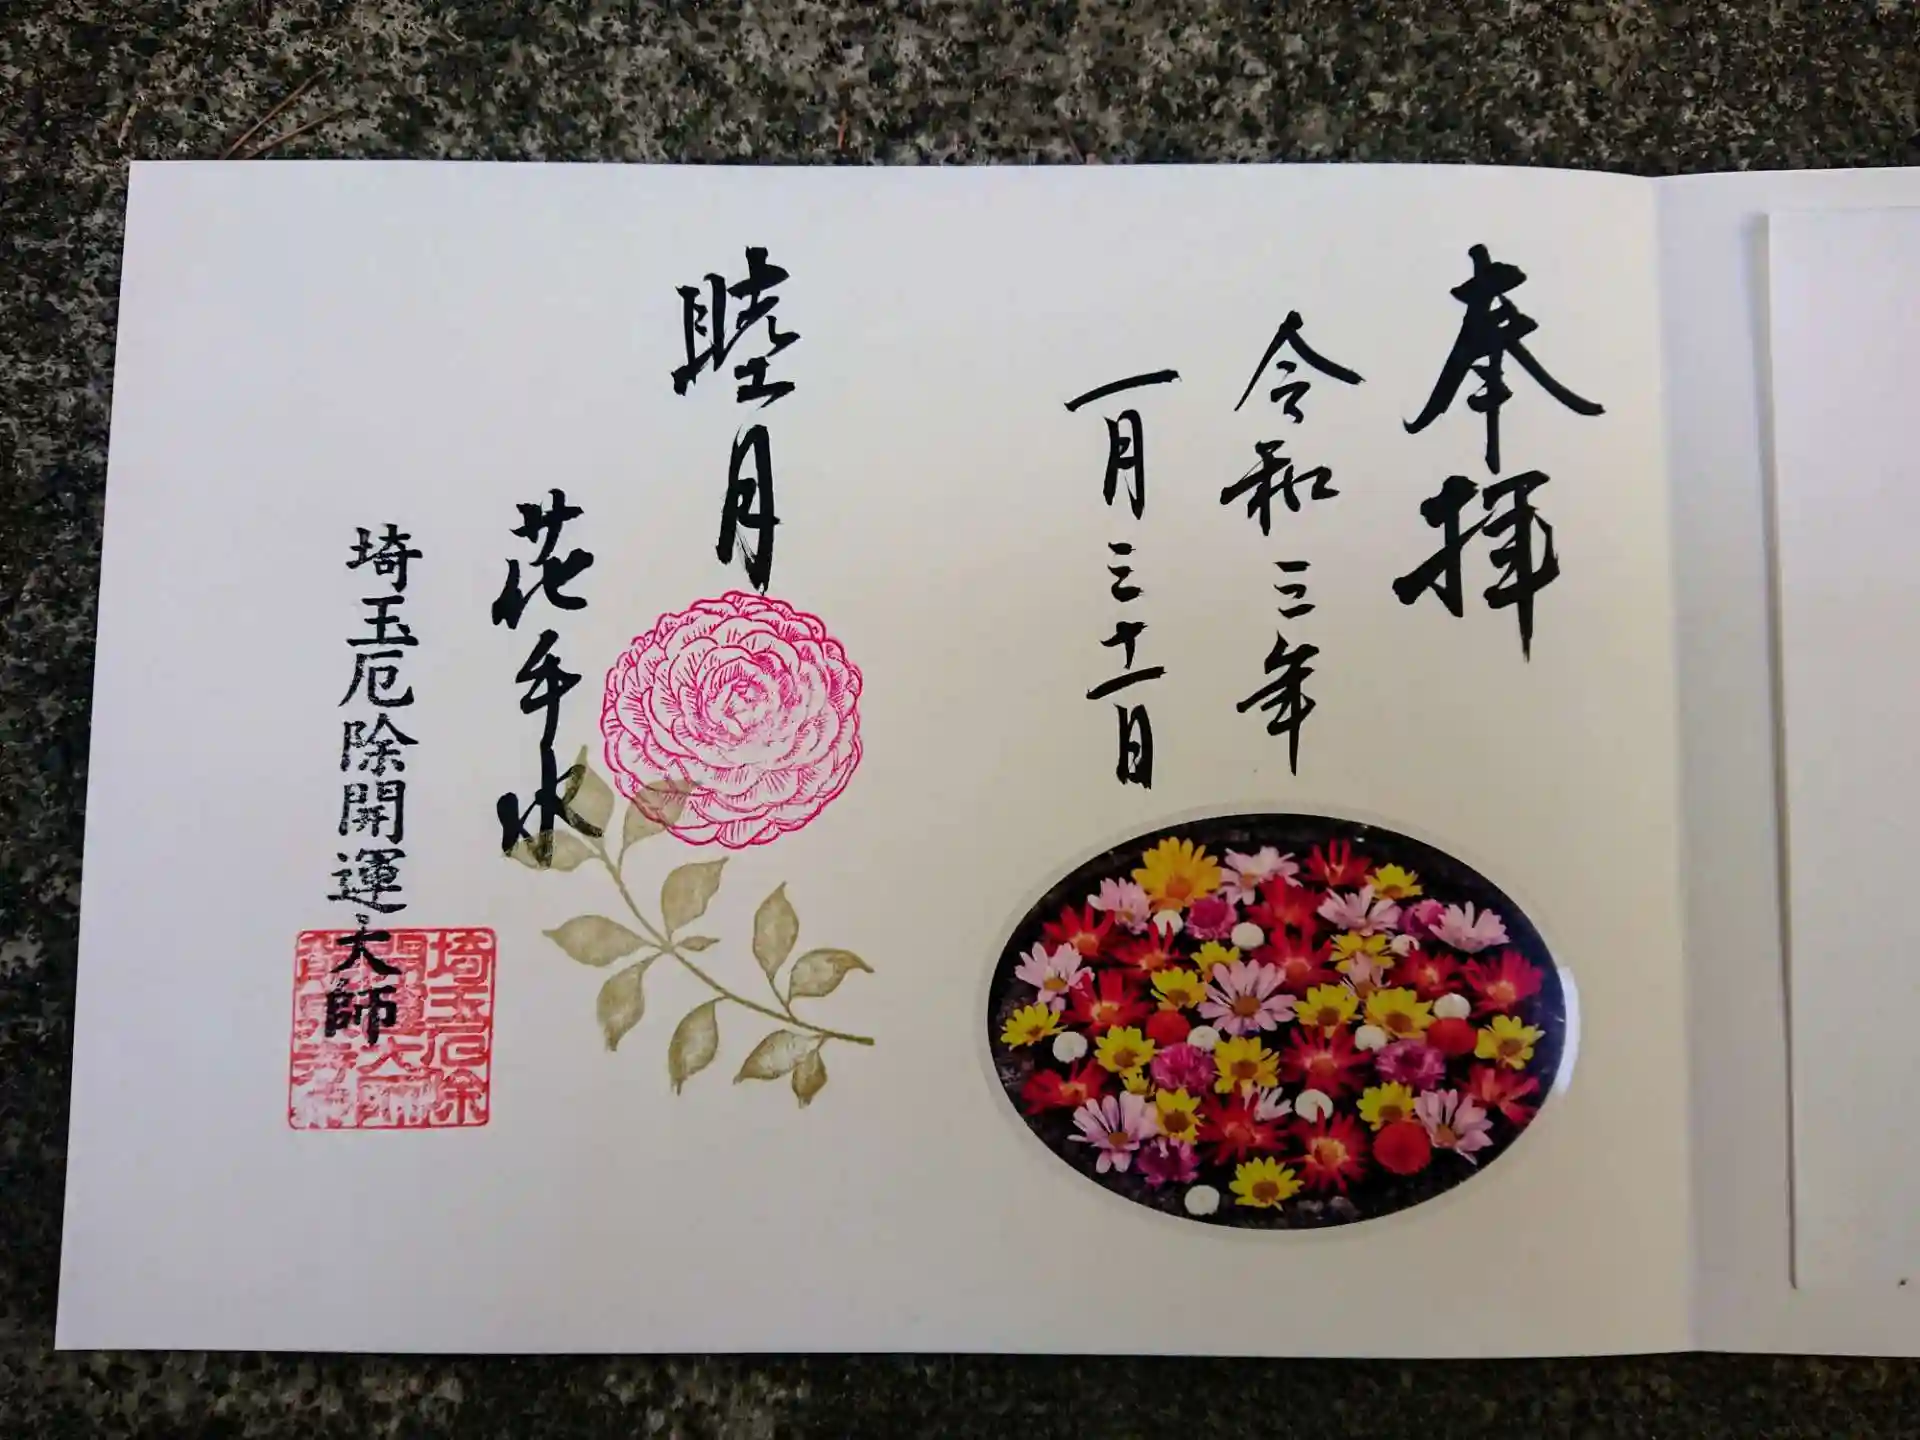 奉拝
令和三年
一月三十一日
睦月
花手水
埼玉厄除開運大師
埼玉厄除
開運大師